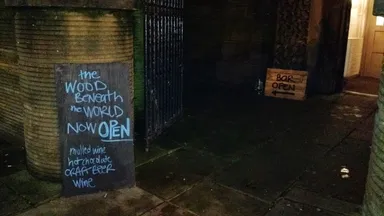 the
WOOD
BENEATH
the WORLD
NOW OPEN
mulled wine
hot chocolate
CRAFT BEER
WINE
BAR
OPEN